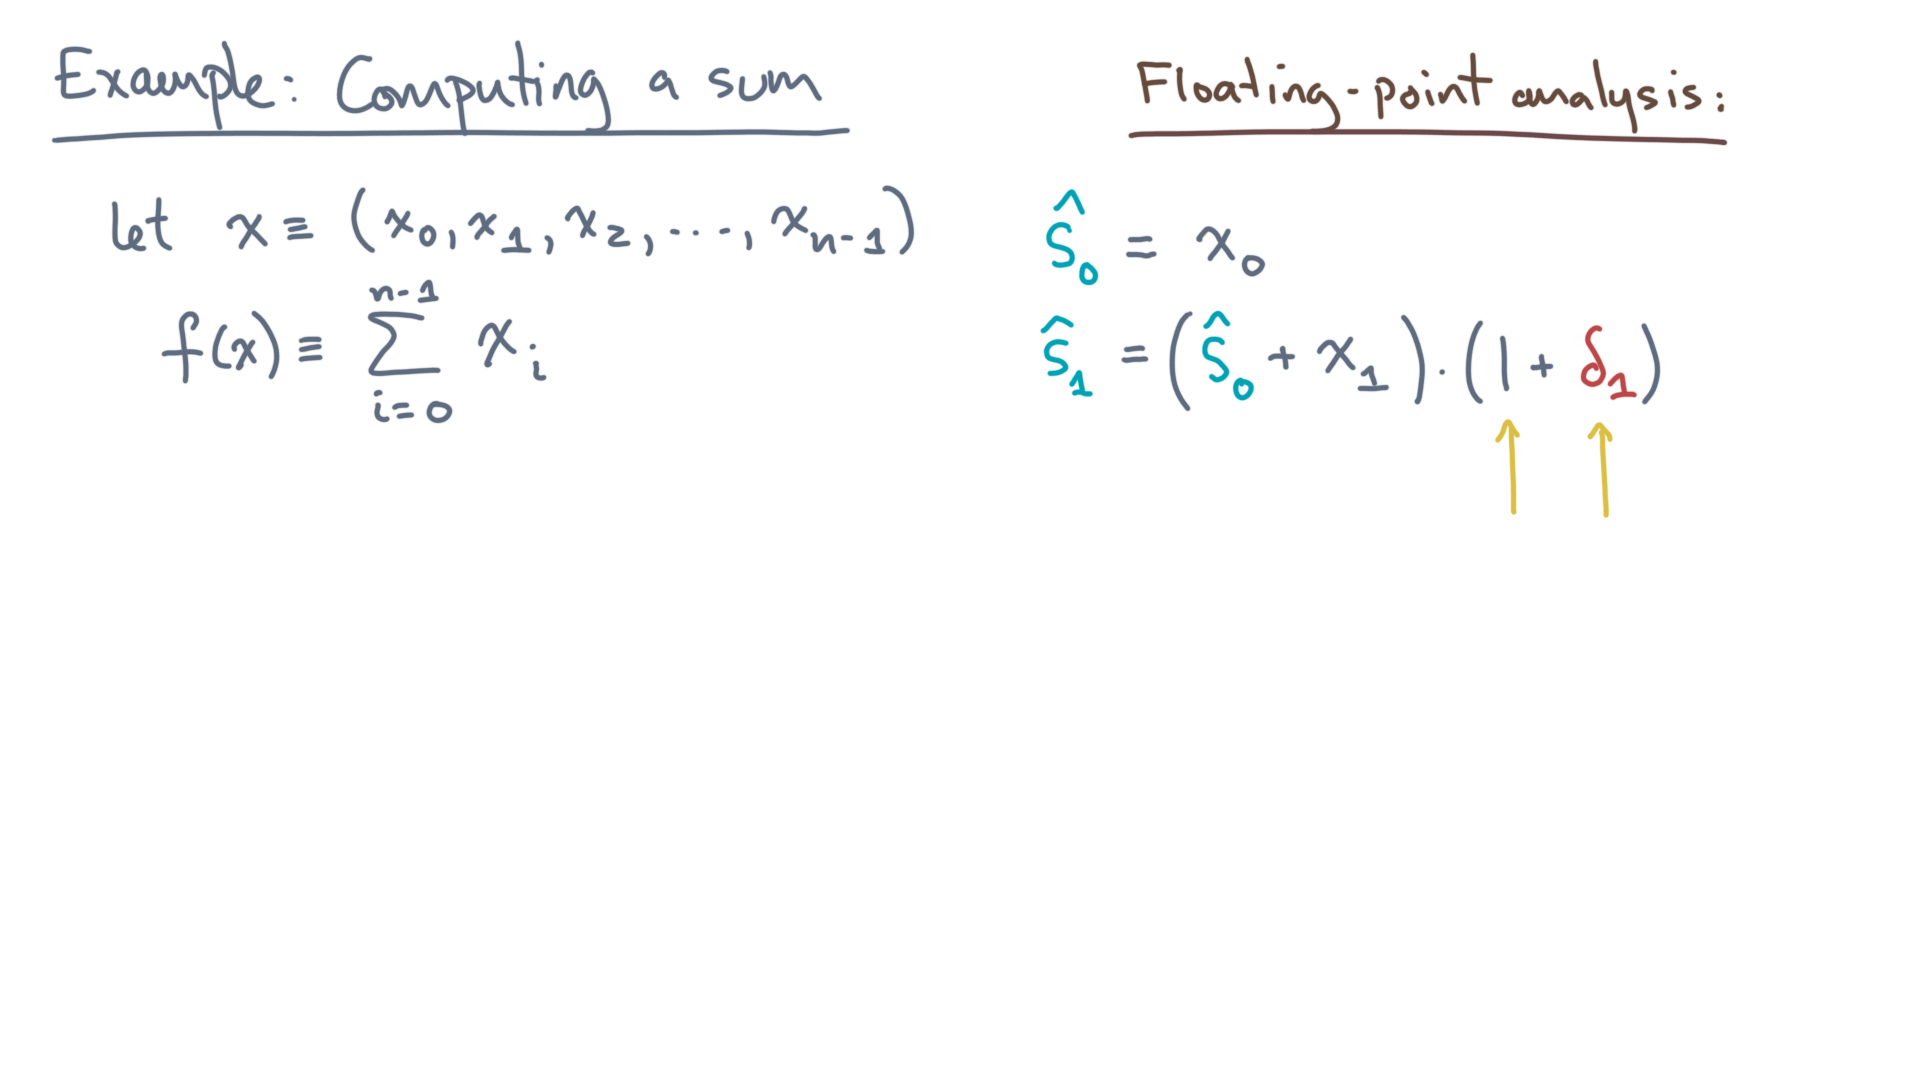 Example: Computing a sum
let x ≡ (x₀, x₁, x₂, ..., xₙ₋₁)
f(x) ≡ ∑ᵢ₌₀ⁿ⁻¹ xᵢ
Floating-point analysis:
ŝ₀ = x₀
ŝ₁ = (ŝ₀ + x₁) · (1 + δ₁)